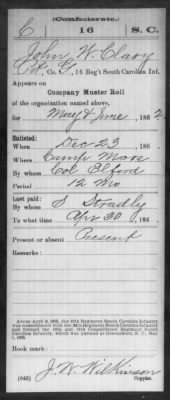 (Confederate.)
C 16 S. C.
John W. Clary
Co. G, 16 Reg't South Carolina Inf.
Appears on
Company Muster Roll
of the organization named above,
for May & June, 186 2.
Enlisted:
When Dec 23, 186
Where Camp Moore
By whom Col Elford
Period 12 Mo
Last paid:
By whom S Stradley
To what time Apr 30, 186
Present or absent Present
Remarks:
About April 9, 1865, the 16th Regiment South Carolina Infantry
was consolidated with the 24th Regiment South Carolina Infantry
and formed the 16th and 24th Consolidated Regiment South
Carolina Infantry, which was paroled at Greensboro, N. C., May
1, 1865.
Book mark:
J. W. Wilkinson
(642) Copyist.